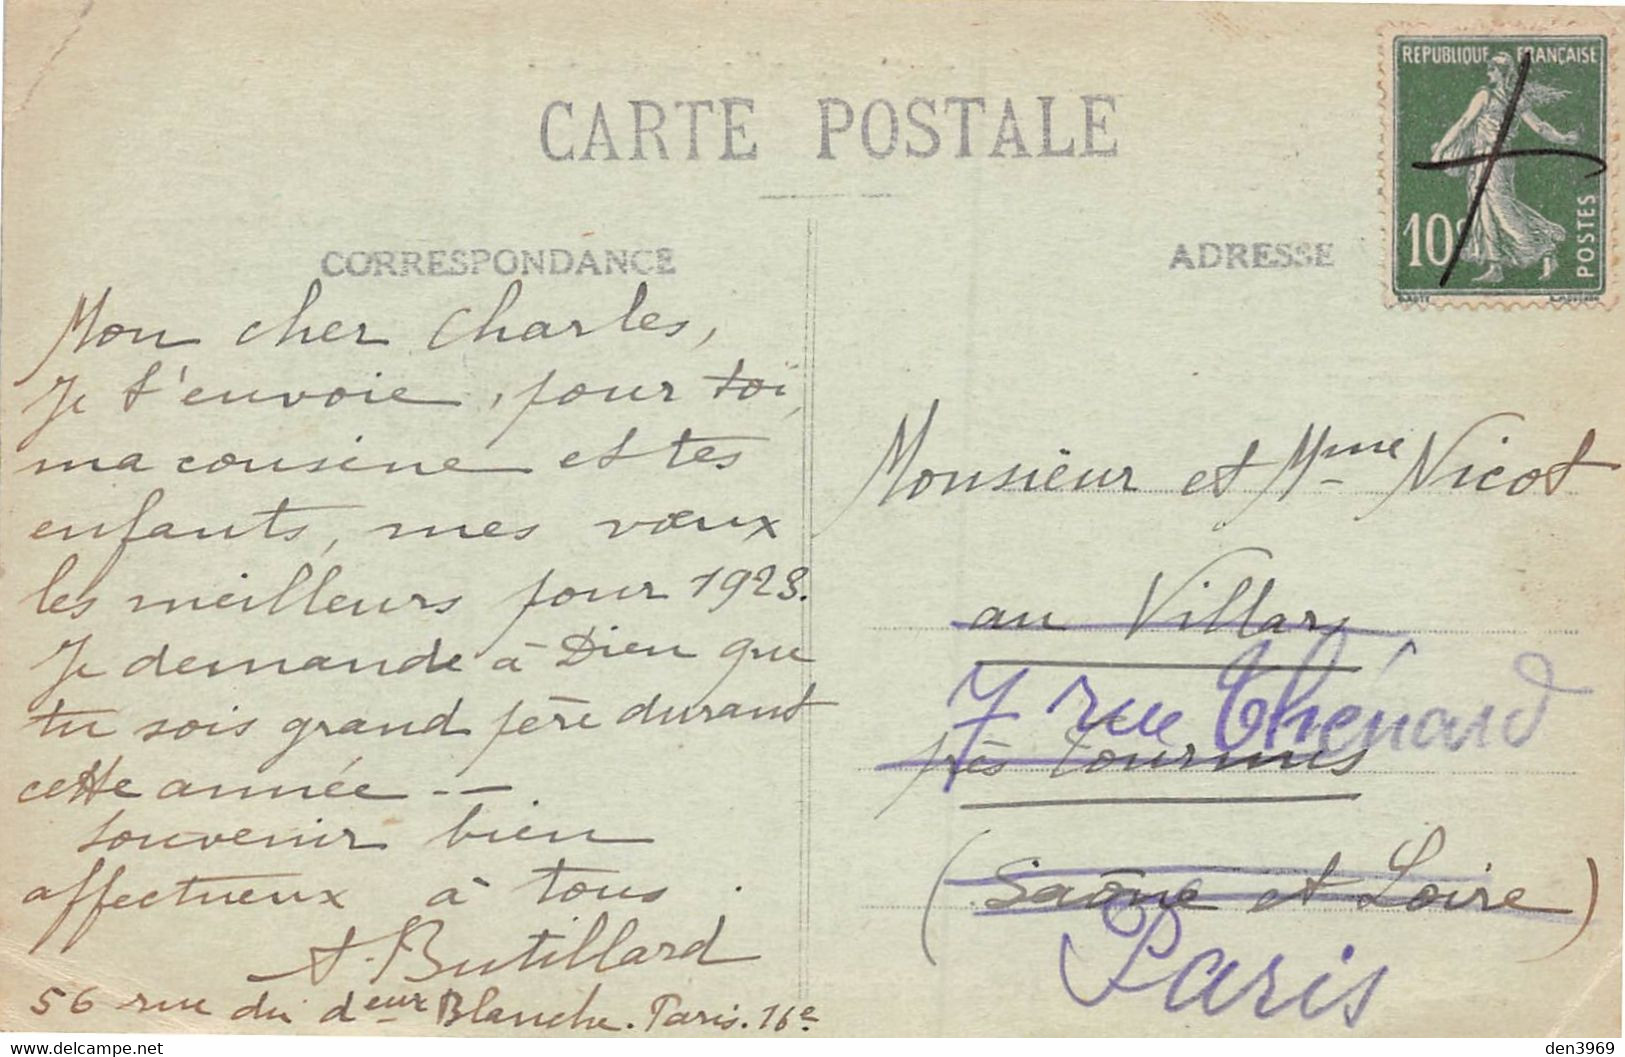 CARTE POSTALE
CORRESPONDANCE
Mon cher Charles,
Je t'envoie, pour toi,
ma cousine et tes
enfants, mes vœux
les meilleurs pour 1923.
Je demande à Dieu que
tu sois grand père durant
cette année --
Souvenir bien
affectueux à tous.
A. Butillard
56 rue du deur Blanche. Paris. 16e
ADRESSE
REPUBLIQUE FRANÇAISE
10c
POSTES
Monsieur et Mme Nicot
au Villars
7 rue Thénard
près Tournus
(Saône et Loire)
Paris
delcampe.net
den3969